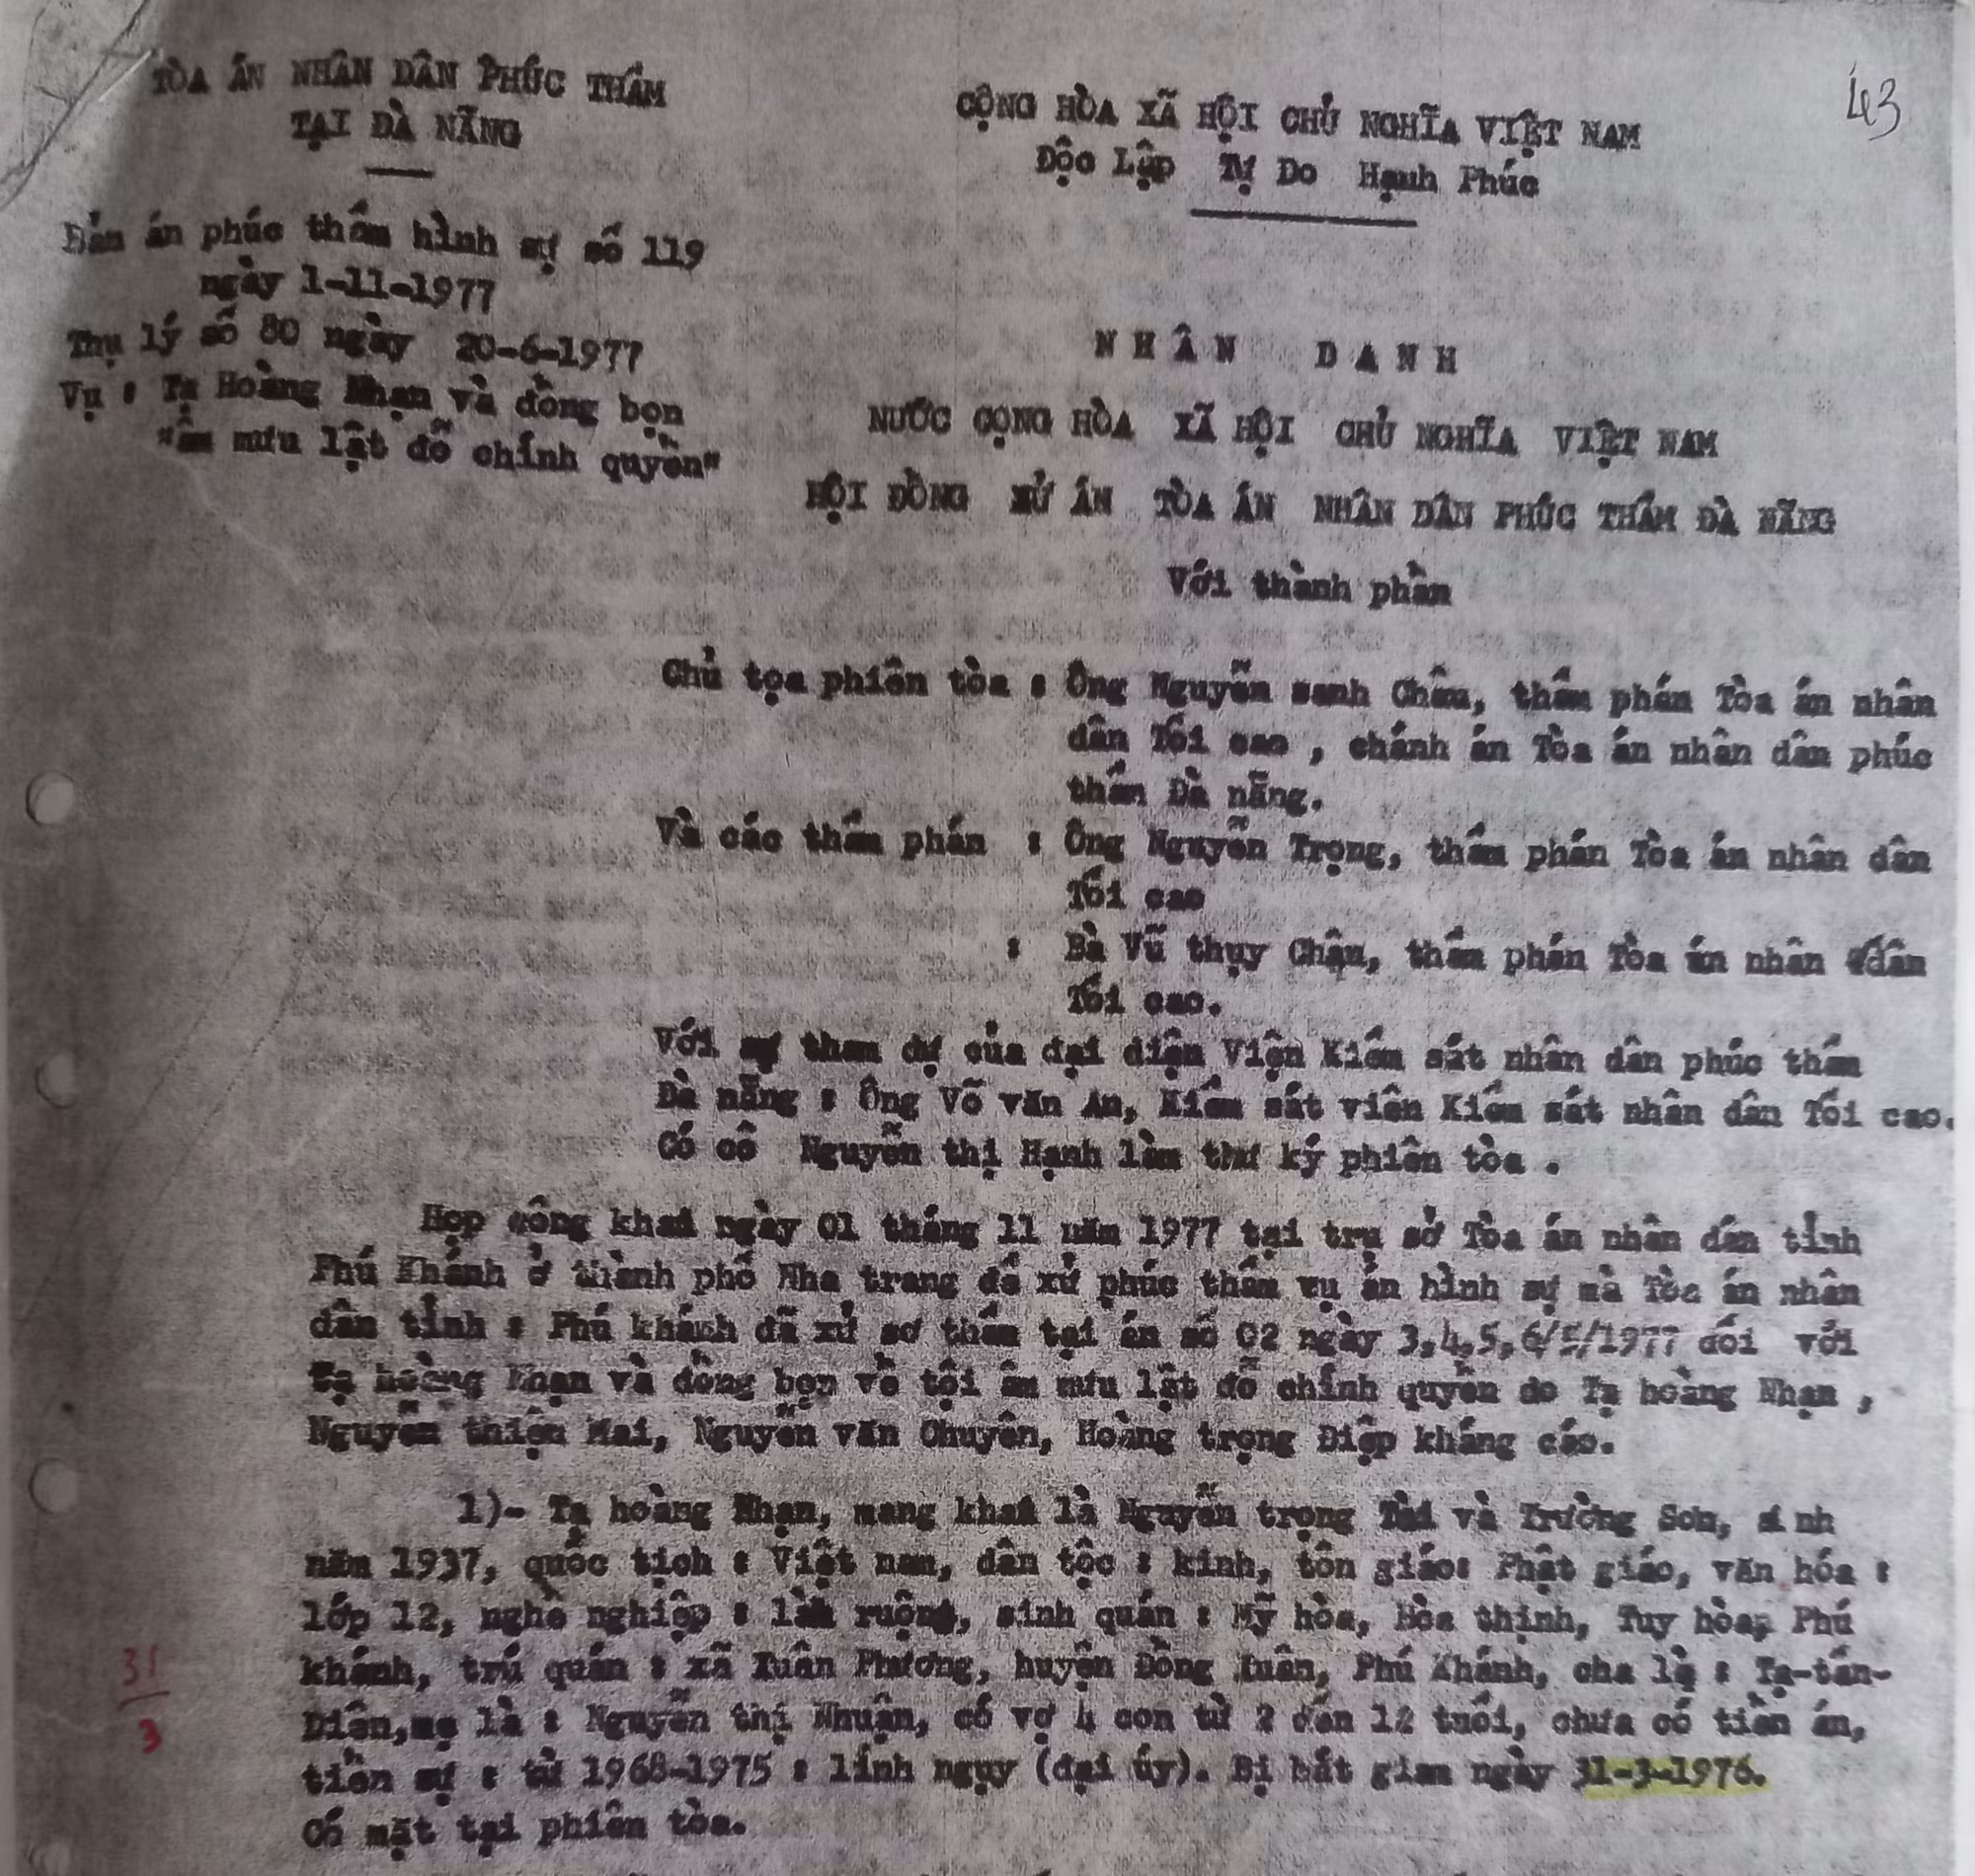 43
TÒA ÁN NHÂN DÂN PHÚC THẨM
TẠI ĐÀ NẴNG
CỘNG HÒA XÃ HỘI CHỦ NGHĨA VIỆT NAM
Độc Lập Tự Do Hạnh Phúc
Bản án phúc thẩm hình sự số 119
ngày 1-11-1977
Thụ lý số 80 ngày 20-6-1977
Vụ : Tạ Hoàng Nhạn và đồng bọn
"âm mưu lật đổ chính quyền"
NHÂN DANH
NƯỚC CỘNG HÒA XÃ HỘI CHỦ NGHĨA VIỆT NAM
HỘI ĐỒNG XỬ ÁN TÒA ÁN NHÂN DÂN PHÚC THẨM ĐÀ NẴNG
Với thành phần
Chủ tọa phiên tòa : Ông Nguyễn sanh Châu, thẩm phán Tòa án nhân
dân Tối cao , chánh án Tòa án nhân dân phúc
thẩm Đà nẵng.
Và các thẩm phán : Ông Nguyễn Trọng, thẩm phán Tòa án nhân dân
Tối cao
: Bà Vũ thụy Châu, thẩm phán Tòa án nhân dân
Tối cao.
Với sự tham dự của đại diện Viện Kiểm sát nhân dân phúc thẩm
Đà nẵng : Ông Võ văn An, Kiểm sát viên Kiểm sát nhân dân Tối cao.
Có cô Nguyễn thị Hạnh làm thư ký phiên tòa .
Họp công khai ngày 01 tháng 11 năm 1977 tại trụ sở Tòa án nhân dân tỉnh
Phú Khánh ở thành phố Nha trang để xử phúc thẩm vụ án hình sự mà Tòa án nhân
dân tỉnh : Phú khánh đã xử sơ thẩm tại án số 02 ngày 3,4,5,6/5/1977 đối với
Tạ hoàng Nhạn và đồng bọn về tội âm mưu lật đổ chính quyền do Tạ hoàng Nhạn ,
Nguyễn thiện Mai, Nguyễn văn Chuyên, Hoàng trọng Điệp kháng cáo.
1)- Tạ hoàng Nhạn, mang khai là Nguyễn trọng Tài và Trường Sơn, sinh
năm 1937, quốc tịch : Việt nam, dân tộc : kinh, tôn giáo: Phật giáo, văn hóa :
lớp 12, nghề nghiệp : làm ruộng, sinh quán : Mỹ hòa, Hòa thịnh, Tuy hòa, Phú
khánh, trú quán : xã Xuân Phương, huyện Đồng Xuân, Phú Khánh, cha là : Tạ-tấn-
Diên,mẹ là : Nguyễn thị Nhuận, có vợ 4 con từ 2 đến 12 tuổi, chưa có tiền án,
tiền sự : từ 1968-1975 : lính ngụy (đại úy). Bị bắt giam ngày 31-3-1976.
Có mặt tại phiên tòa.
31
3